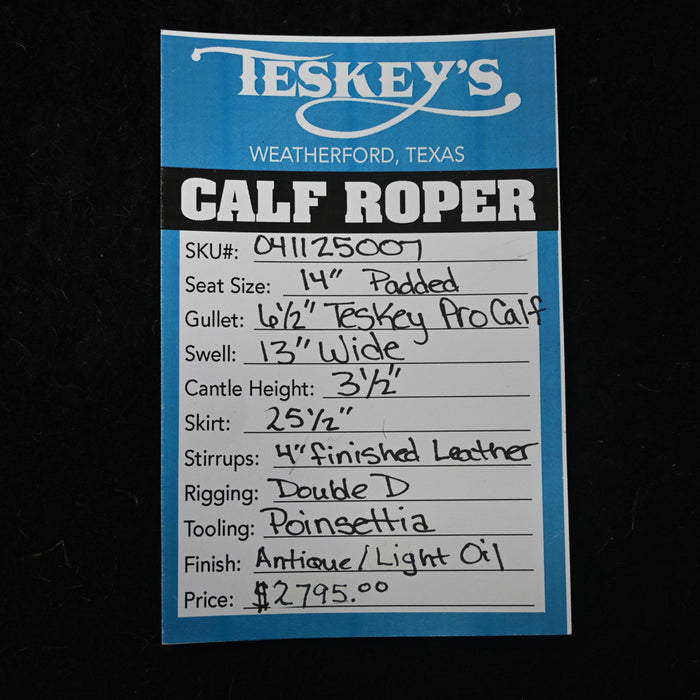 TESKEY'S
WEATHERFORD, TEXAS
CALF ROPER
SKU#: 041125007
Seat Size: 14" Padded
Gullet: 6½" Teskey Pro Calf
Swell: 13" Wide
Cantle Height: 3½"
Skirt: 25½"
Stirrups: 4" finished Leather
Rigging: Double D
Tooling: Poinsettia
Finish: Antique/Light Oil
Price: $2795.00